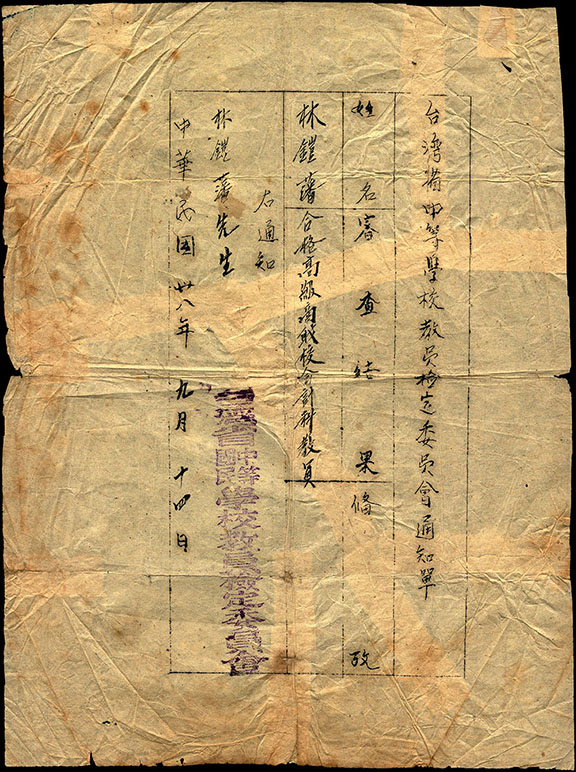 台灣省中等學校教員檢定委員會通知單
姓名
審查結果
備攷
林鎧藩
合格高級商職校會計科教員
右通知
林鎧藩先生
中華民國卅八年九月十四日
台灣省中等學校教員檢定委員會